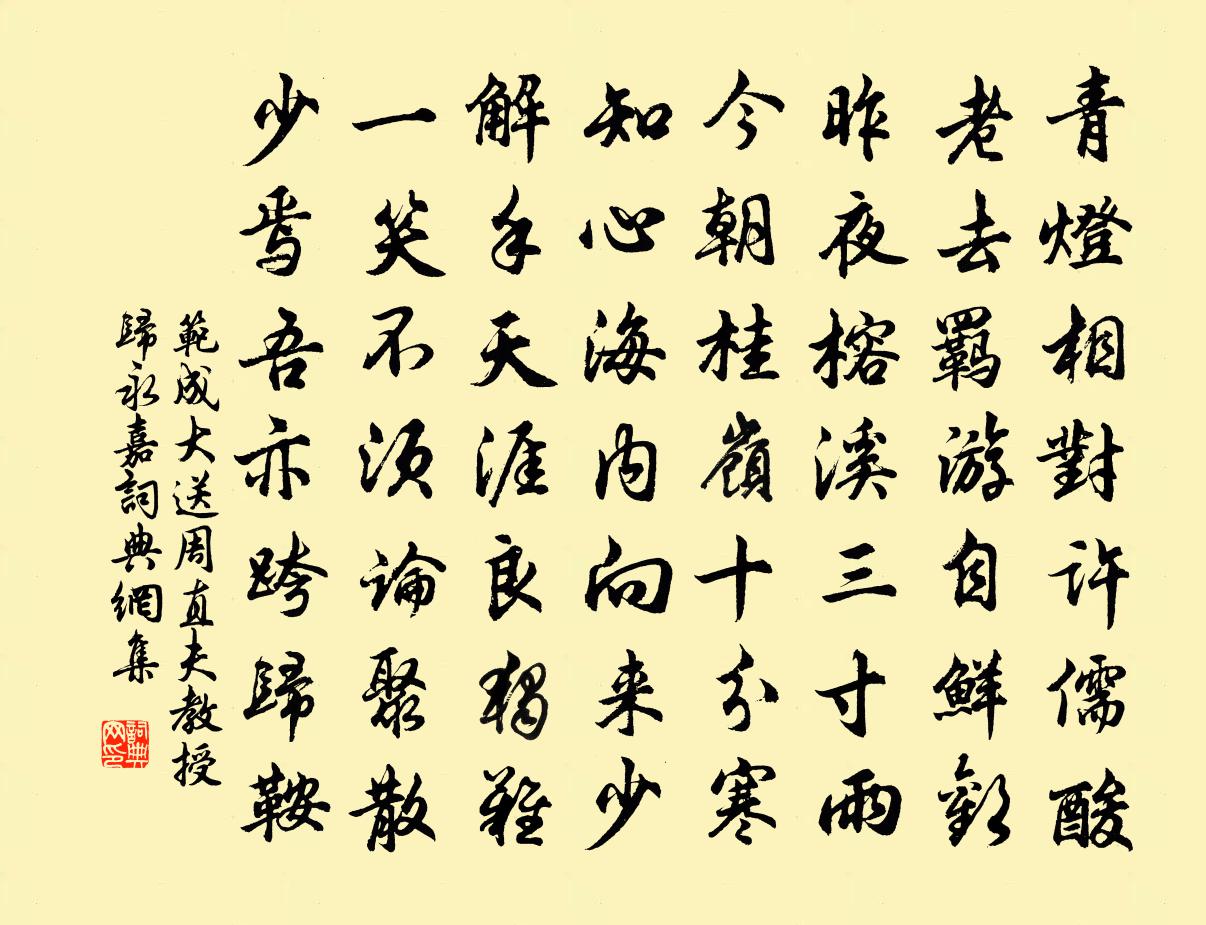 青燈相對許儒酸
老去羈游自鮮歡
昨夜榕溪三寸雨
今朝桂嶺十分寒
知心海內向来少
解手天涯良獨難
一笑不須論聚散
少焉吾亦跨歸鞍
範成大送周直夫教授
歸永嘉詞典網集
詞典
网印